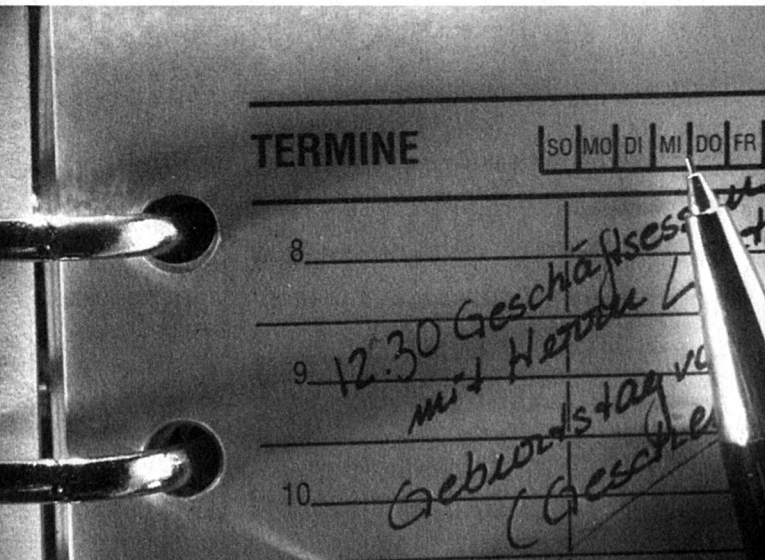 TERMINE
SO MO DI MI DO FR
8
12.30 Geschäftsessen
9
mit Herrn L
Geburtstag vo
10
(Gesche